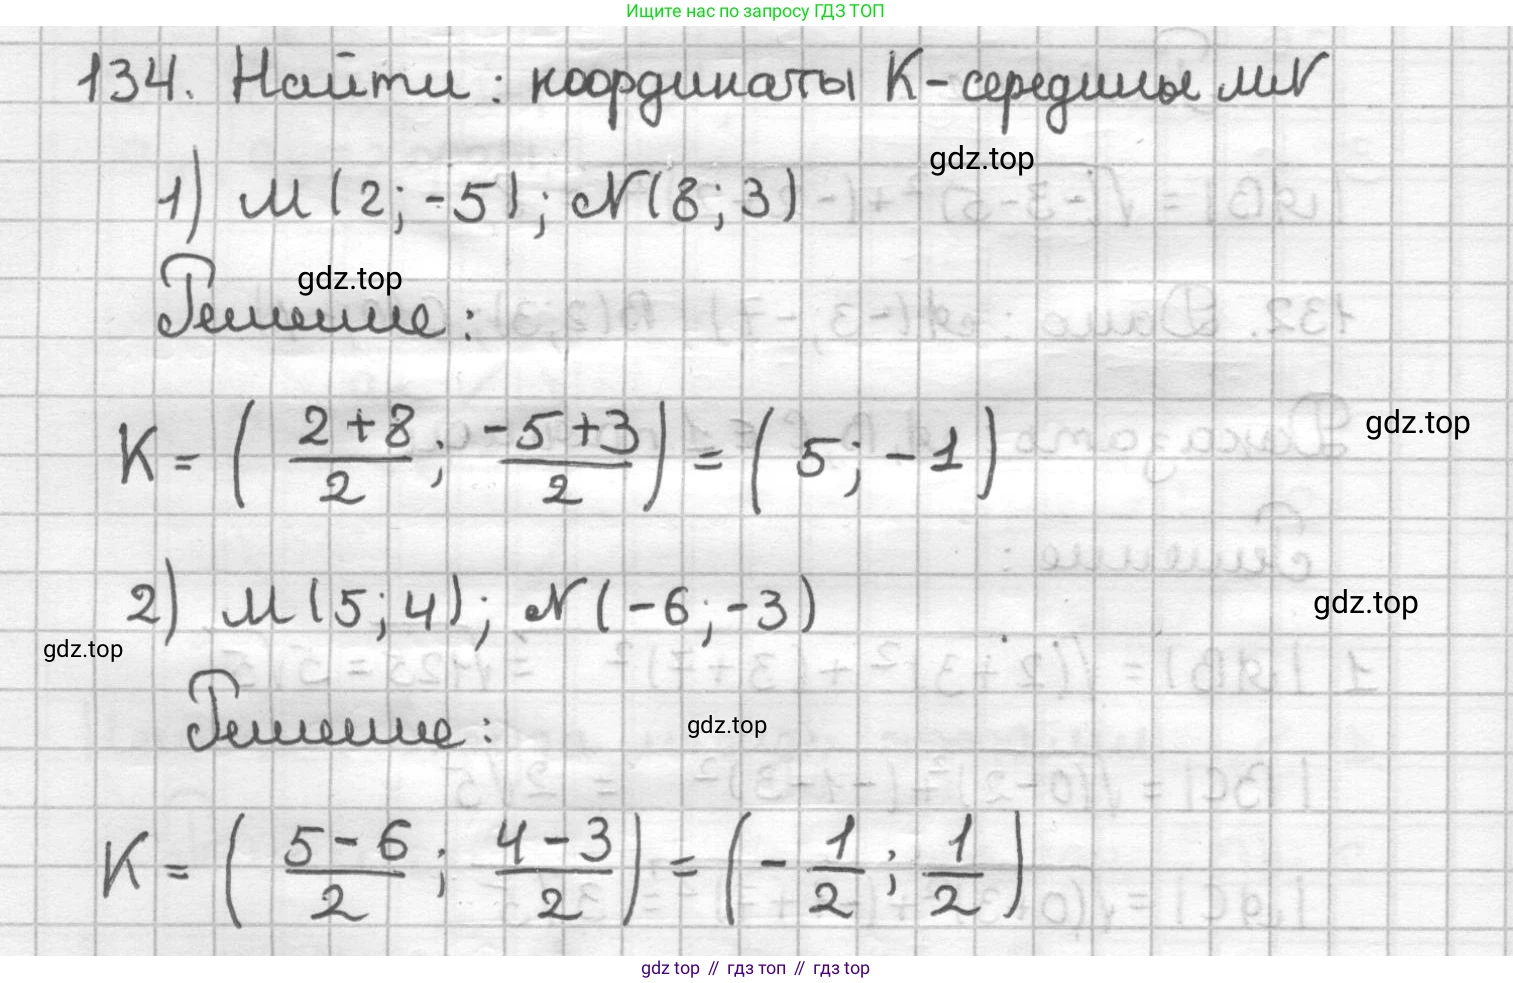 Ищите нас по запросу ГДЗ ТОП
134. Найти: координаты K-середины MN
gdz.top
1) M(2; -5); N(8; 3)
gdz.top
Решение:
K = ( (2+8)/2 ; (-5+3)/2 ) = ( 5; -1 )
gdz.top
2) M(5; 4); N(-6; -3)
gdz.top
gdz.top
Решение:
gdz.top
K = ( (5-6)/2 ; (4-3)/2 ) = ( -1/2 ; 1/2 )
gdz top // гдз топ // гдз top